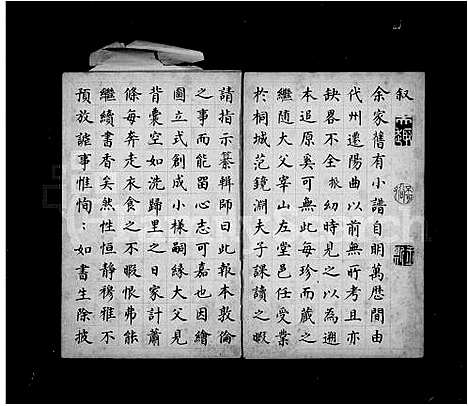 叙
余家舊有小譜自明萬歷間由
代州遷陽曲以前無所考且亦
缺畧不全振幼時見之以為遡
本追原奚可無此每珍而藏之
繼隨大父宰山左堂邑任受業
於桐城范鏡淵夫子課讀之暇
請指示纂輯師曰此報本敦倫
之事而能留心志可嘉也因繪
圖立式創成小樣嗣緣大父見
背囊空如洗歸里之日家計蕭
條每奔走衣食之不暇恨弗能
繼續書香矣然性恒靜穆雅不
預放誕事惟恂恂如書生除披